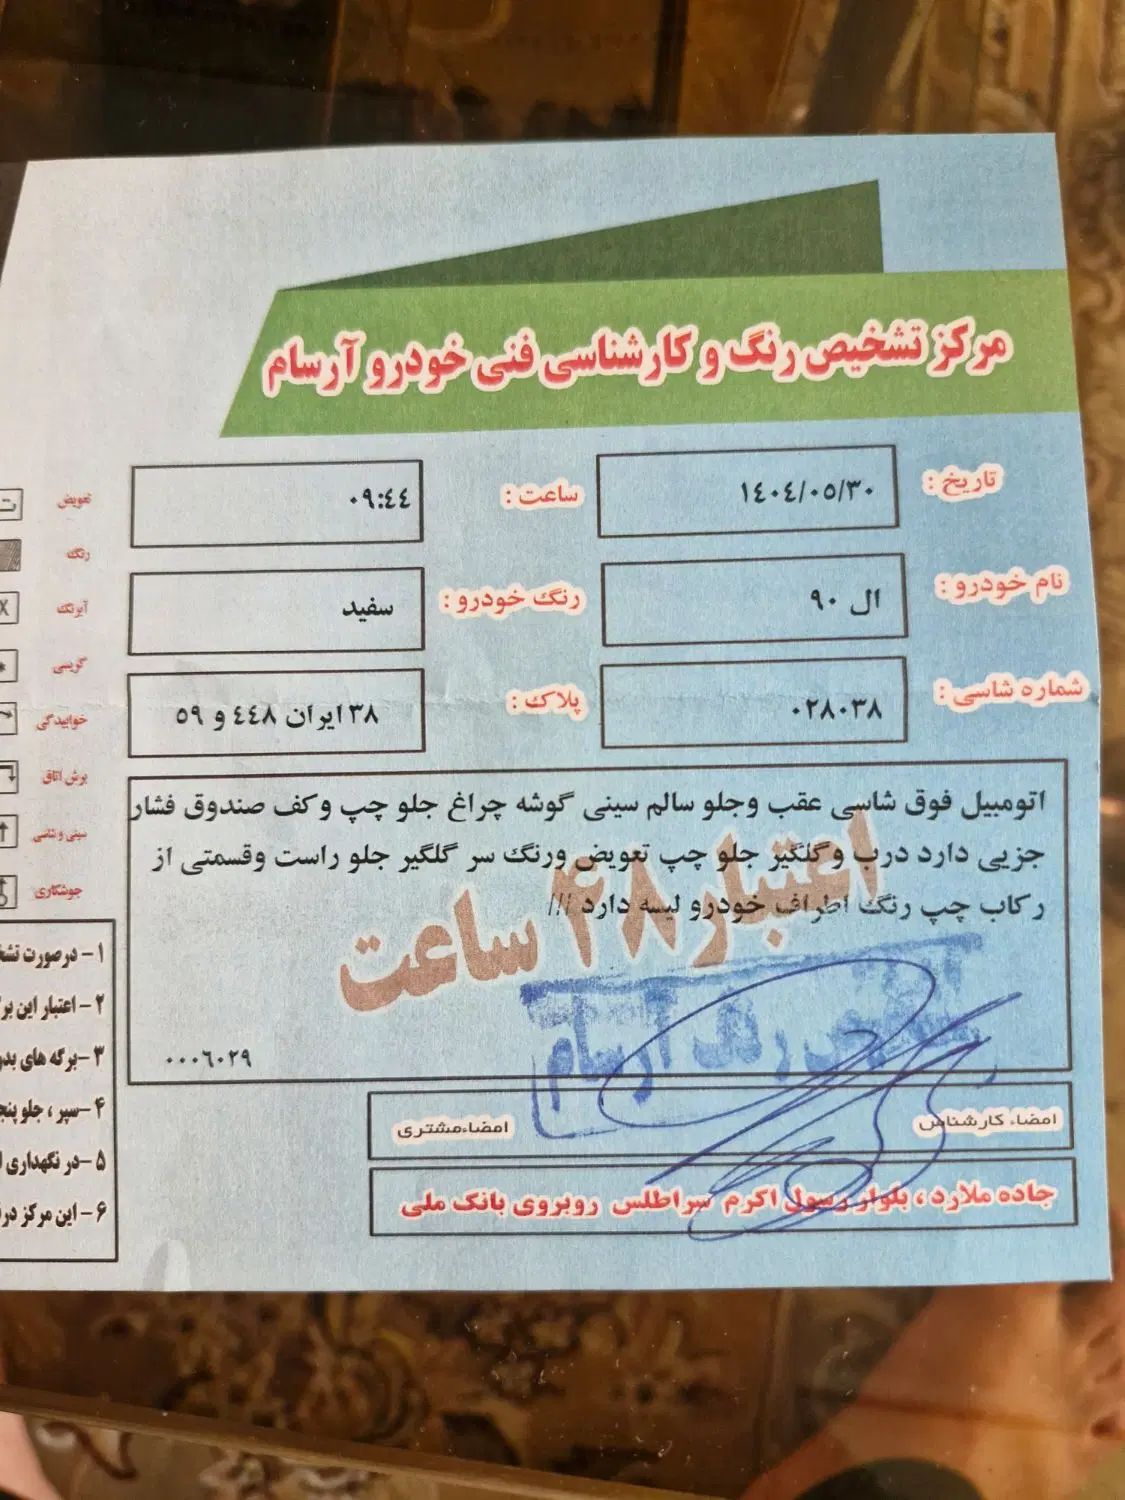 مرکز تشخیص رنگ و کارشناسی فنی خودرو آرسام
تاریخ : ۱۴۰۴/۰۵/۳۰
ساعت : ۰۹:۴۴
نام خودرو : ال ۹۰
رنگ خودرو : سفید
شماره شاسی : ۰۲۸۰۳۸
پلاک : ۳۸ ایران ۴۴۸ و ۵۹
اتومبیل فوق شاسی عقب وجلو سالم سینی گوشه چراغ جلو چپ وکف صندوق فشار
جزیی دارد درب وگلگیر جلو چپ تعویض ورنگ سر گلگیر جلو راست وقسمتی از
رکاب چپ رنگ اطراف خودرو لیسه دارد ///
اعتبار ۴۸ ساعت
رنگ آرسام
۰۰۰۶۰۲۹
امضاء کارشناس
امضاءمشتری
جاده ملارد ، بلوار رسول اکرم سراطلس روبروی بانک ملی
تعویض ت
رنگ
آبرنگ X
گریسی *
خوابیدگی
برش اتاق
سینی و شاسی
جوشکاری
۱- درصورت
۲- اعتبار این
۳- برگه های
۴- سپر ، جلو
۵- در نگهداری
۶- این مرکز